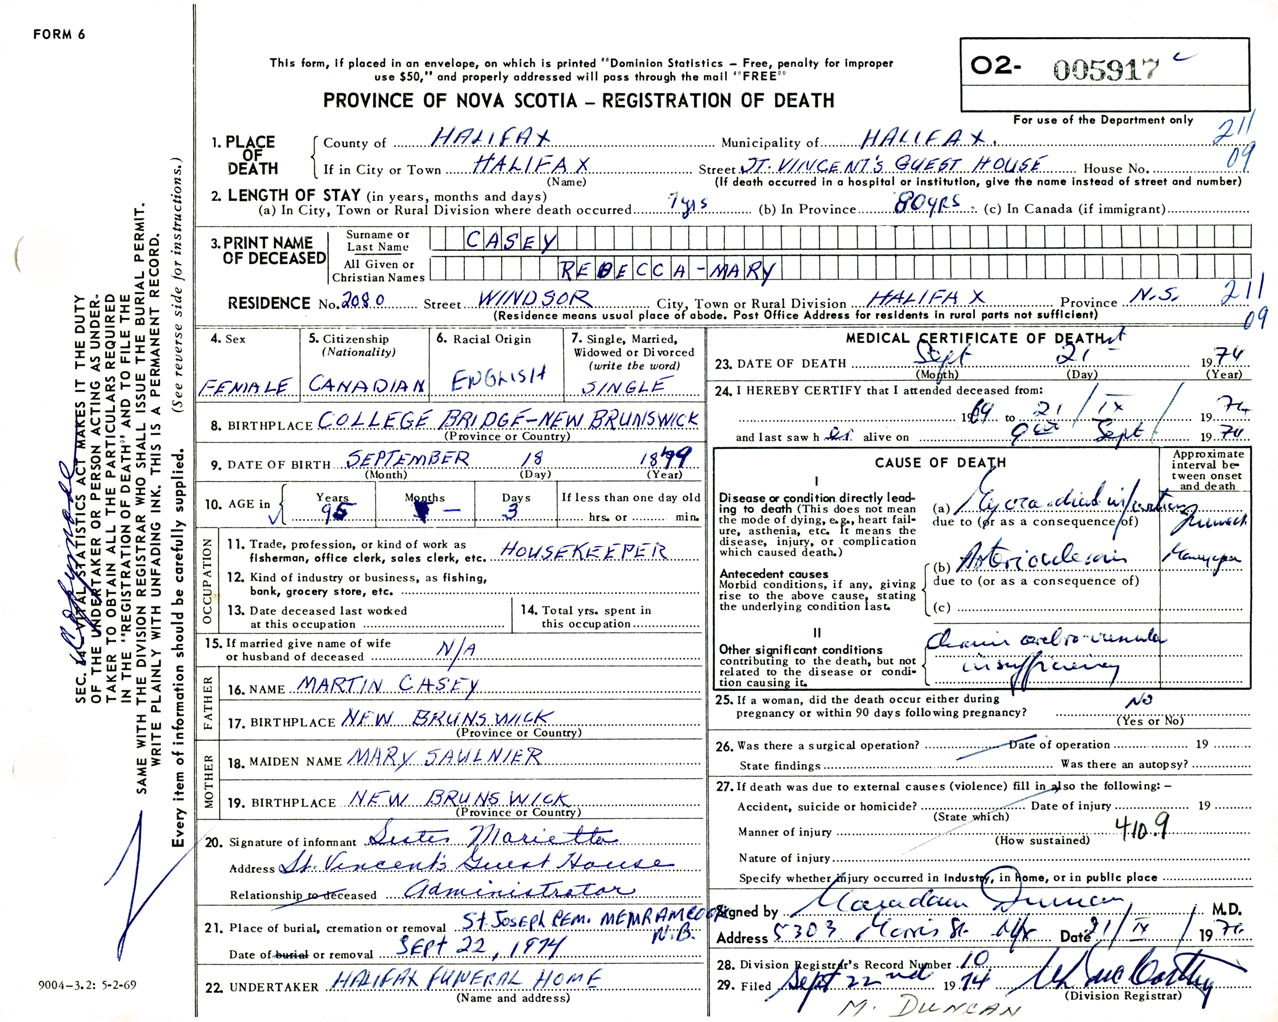 FORM 6
This form, if placed in an envelope, on which is printed "Dominion Statistics – Free, penalty for improper
use $50," and properly addressed will pass through the mail "FREE"
PROVINCE OF NOVA SCOTIA – REGISTRATION OF DEATH
O2- 005917
For use of the Department only
211
09
1. PLACE OF DEATH
County of HALIFAX Municipality of HALIFAX.
If in City or Town HALIFAX Street ST. VINCENT'S GUEST HOUSE House No.
(Name) (If death occurred in a hospital or institution, give the name instead of street and number)
2. LENGTH OF STAY (in years, months and days)
(a) In City, Town or Rural Division where death occurred 7yrs (b) In Province 80yrs. (c) In Canada (if immigrant)
3. PRINT NAME OF DECEASED
Surname or Last Name CASEY
All Given or Christian Names REBECCA-MARY
RESIDENCE No. 2080 Street WINDSOR City, Town or Rural Division HALIFAX Province N.S.
(Residence means usual place of abode. Post Office Address for residents in rural parts not sufficient)
211
09
4. Sex FEMALE
5. Citizenship (Nationality) CANADIAN
6. Racial Origin ENGLISH
7. Single, Married, Widowed or Divorced (write the word) SINGLE
8. BIRTHPLACE COLLEGE BRIDGE-NEW BRUNSWICK
(Province or Country)
9. DATE OF BIRTH SEPTEMBER 18 1879
(Month) (Day) (Year)
10. AGE in Years 95 Months – Days 3 If less than one day old
hrs. or min.
OCCUPATION
11. Trade, profession, or kind of work as
fisherman, office clerk, sales clerk, etc. HOUSEKEEPER
12. Kind of industry or business, as fishing,
bank, grocery store, etc.
13. Date deceased last worked
at this occupation
14. Total yrs. spent in
this occupation
15. If married give name of wife
or husband of deceased N/A
FATHER
16. NAME MARTIN CASEY
17. BIRTHPLACE NEW BRUNSWICK
(Province or Country)
MOTHER
18. MAIDEN NAME MARY SAULNIER
19. BIRTHPLACE NEW BRUNSWICK
(Province or Country)
20. Signature of informant Sister Marietta
Address St. Vincent's Guest House
Relationship to deceased Administrator
21. Place of burial, cremation or removal ST. JOSEPH CEM. MEMRAMCOOK
N.B.
Date of burial or removal SEPT 22, 1974
22. UNDERTAKER HALIFAX FUNERAL HOME
(Name and address)
MEDICAL CERTIFICATE OF DEATH
23. DATE OF DEATH Sept 21st 1974
(Month) (Day) (Year)
24. I HEREBY CERTIFY that I attended deceased from:
1969 to 21/IX 1974
and last saw her alive on Sept 1974
CAUSE OF DEATH
Approximate
interval be-
tween onset
and death
I
Disease or condition directly lead-
ing to death (This does not
mean the mode of dying, e.g., heart fail-
ure, asthenia, etc. It means the
disease, injury, or complication
which caused death.)
(a) Myocardial infarction
due to (or as a consequence of)
(b)
due to (or as a consequence of)
(c)
Antecedent causes
Morbid conditions, if any, giving
rise to the above cause, stating
the underlying condition last.
II
Other significant conditions
contributing to the death, but not
related to the disease or condi-
tion causing it.
Chronic cerebro-vascular
insufficiency
25. If a woman, did the death occur either during
pregnancy or within 90 days following pregnancy? No
(Yes or No)
26. Was there a surgical operation? Date of operation 19
State findings Was there an autopsy?
27. If death was due to external causes (violence) fill in also the following: –
Accident, suicide or homicide? Date of injury 19
(State which)
Manner of injury
(How sustained)
410.9
Nature of injury
Specify whether injury occurred in industry, in home, or in public place
Signed by Duncan M.D.
Address 5303 Morris St. Hfx Date 21/IX 1974
28. Division Registrar's Record Number 10
29. Filed Sept 22nd 1974
(Division Registrar)
M. DUNCAN
9004-3.2: 5-2-69
SEC. 14 VITAL STATISTICS ACT MAKES IT THE DUTY
OF THE UNDERTAKER OR PERSON ACTING AS UNDER-
TAKER TO OBTAIN ALL THE PARTICULARS REQUIRED
IN THE "REGISTRATION OF DEATH" AND TO FILE THE
SAME WITH THE DIVISION REGISTRAR WHO SHALL ISSUE THE BURIAL PERMIT.
WRITE PLAINLY WITH UNFADING INK. THIS IS A PERMANENT RECORD.
Every item of information should be carefully supplied. (See reverse side for instructions.)